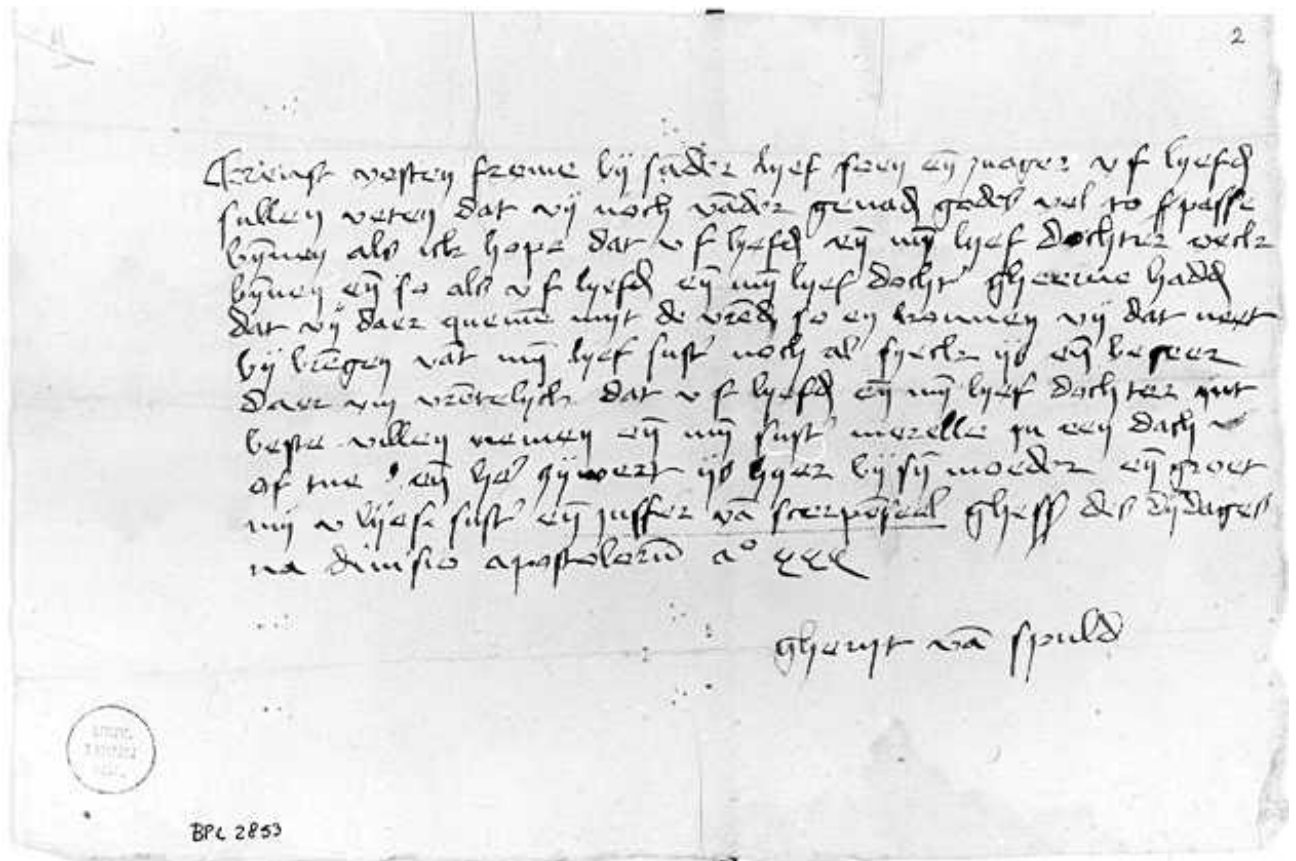 2
Erenst vesten frome bij sunder lyef soen en̄ zwager v l lyefd
sullen weten dat wij noch vāder genad godes wel to passe
bynnen als ick hope dat v l lyefd en̄ mȳ lyef dochter oeck
bynnen en̄ so als v l lyefd en̄ mȳ lyef docht' gheerne hadd
dat wij daer queme myt de vrēd so en konnen wij dat neet
bij brēgen want mȳ lyef sust' noch al syeck ijs en̄ begeer
daer vm vrētelyck dat v l lyefd en̄ mȳ lyef dochter int
beste willen nemen en̄ mȳ sust' in een dach
of twe en̄ ijs hyer bij sȳ moeder en̄ groet
mij v lyeve sust' en̄ juffer vā scerpēseel des dijdages
na divisio apostolorū a° xxx
gheryt vā spuld
BPL 2853